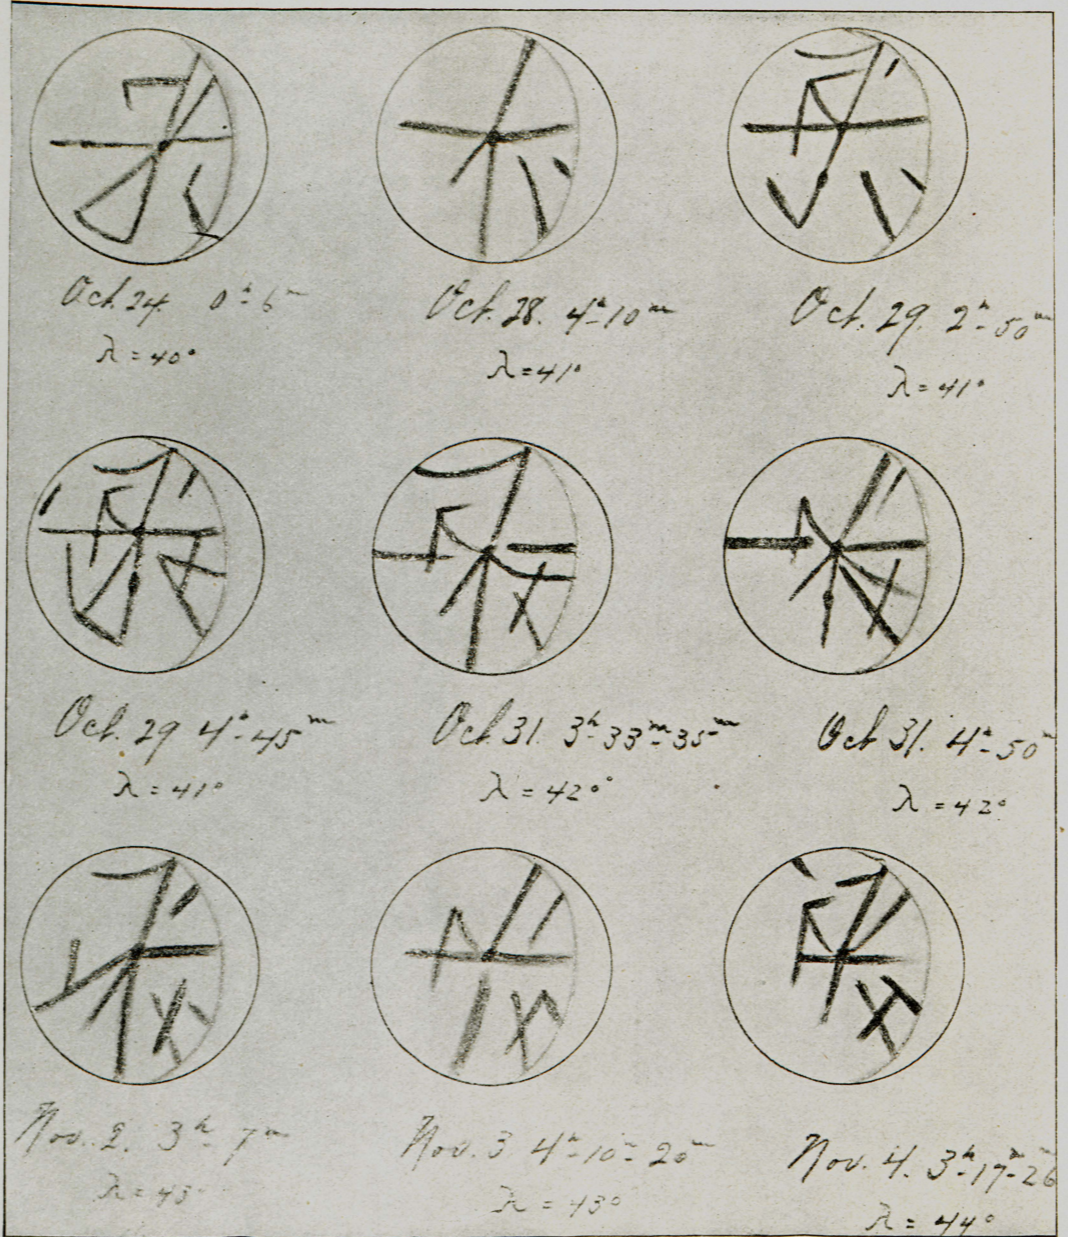 Oct. 24. 0ʰ-6ᵐ
λ = 40°
Oct. 28. 4ʰ-10ᵐ
λ = 41°
Oct. 29. 2ʰ-50ᵐ
λ = 41°
Oct. 29 4ʰ-45ᵐ
λ = 41°
Oct. 31. 3ʰ-33ᵐ-35ᵐ
λ = 42°
Oct 31. 4ʰ-50ᵐ
λ = 42°
Nov. 2. 3ʰ-7ᵐ
λ = 43°
Nov. 3 4ʰ-10ᵐ-20ᵐ
λ = 43°
Nov. 4. 3ʰ-17ᵐ-26ᵐ
λ = 44°